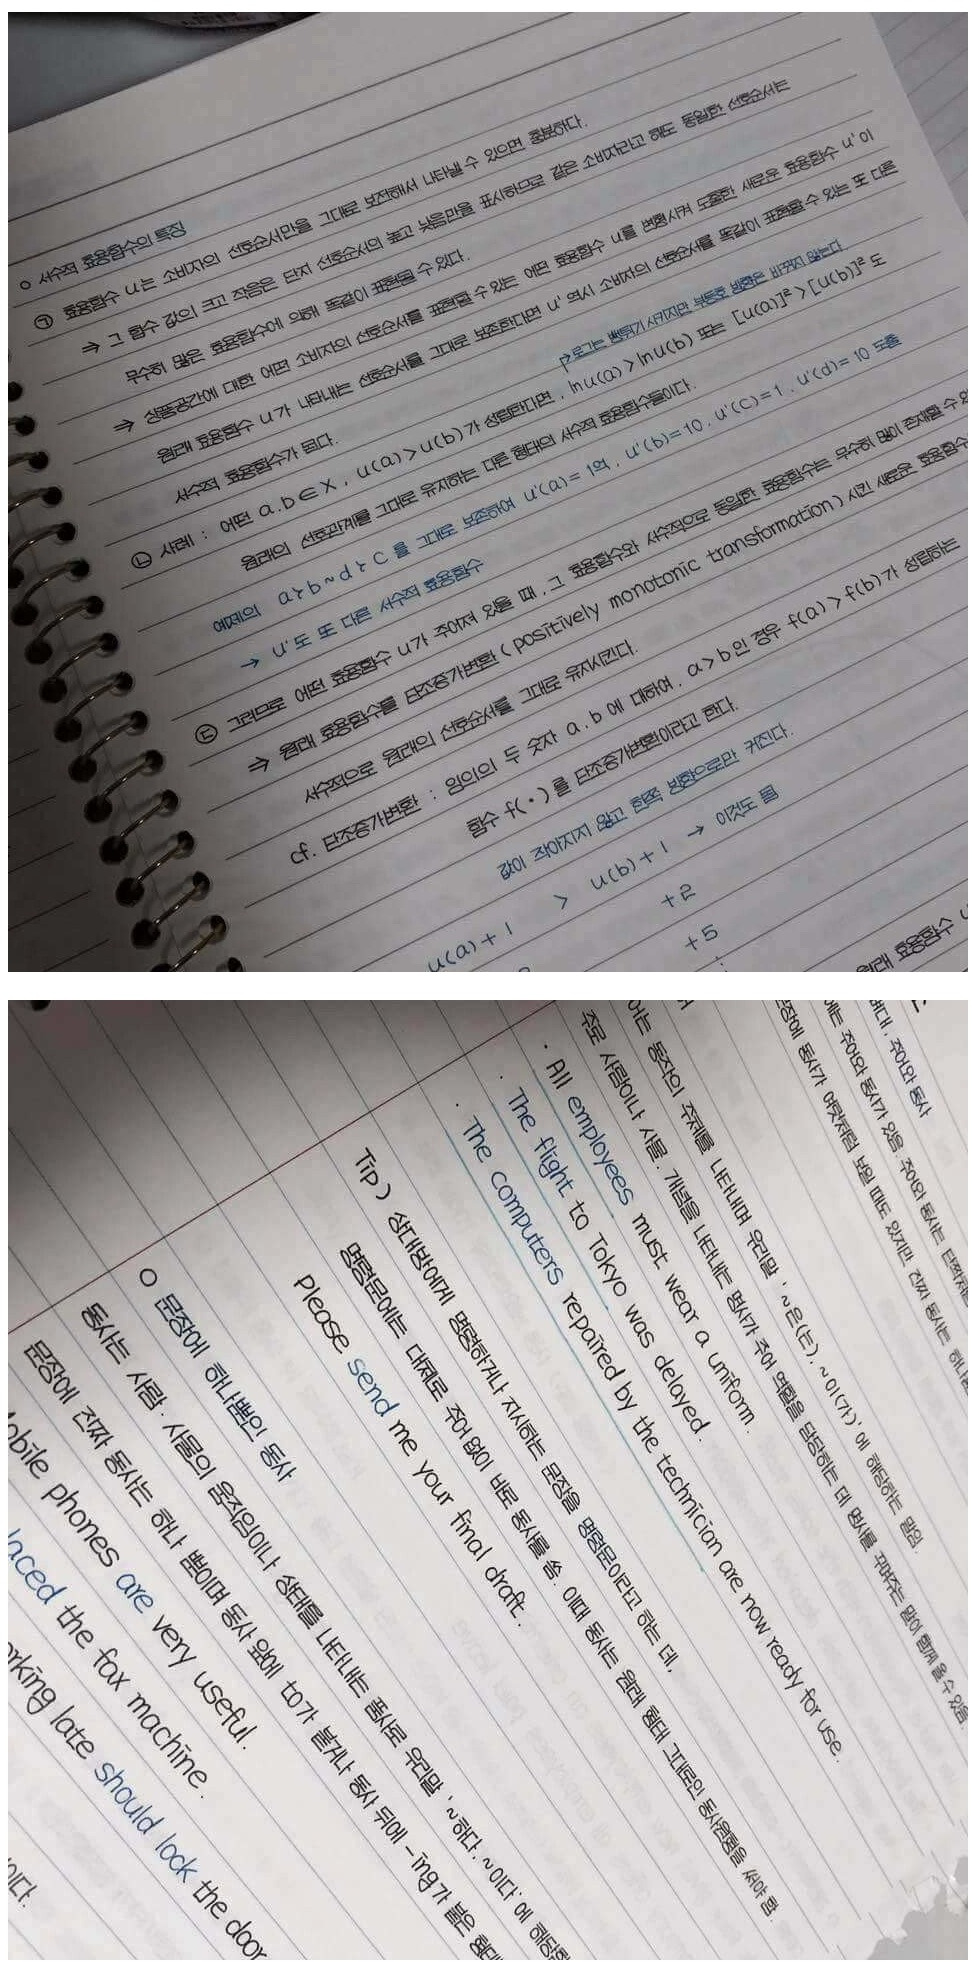 ○ 서수적 효용함수의 특징
㉠ 효용함수 u는 소비자의 선호순서만을 그대로 보전해서 나타낼 수 있으면 충분하다.
⇒ 그 함수 값의 크고 작음은 단지 선호순서의 높고 낮음만을 표시하므로 같은 소비자라고 해도 동일한 선호순서는
무수히 많은 효용함수에 의해 똑같이 표현될 수 있다.
⇒ 상품공간에 대한 어떤 소비자의 선호순서를 표현할 수 있는 어떤 효용함수 u를 변환시켜 도출한 새로운 효용함수 u'이
원래 효용함수 u가 나타내는 선호순서를 그대로 보존한다면 u' 역시 소비자의 선호순서를 똑같이 표현할 수 있는 또 다른
서수적 효용함수가 된다.
로그는 변환시키지만 부등호 방향은 바꾸지 않는다
㉡ 사례 : 어떤 a.b∈X, u(a)>u(b)가 성립한다면, ln u(a)>ln u(b) 또는 [u(a)]²>[u(b)]²도
원래의 선호관계를 그대로 유지하는 다른 형태의 서수적 효용함수들이다.
예제의 a≻b~d≻c를 그대로 보존하여 u'(a)= u'(b)=10, u'(c)=1, u'(d)=10 도출
→ u'도 또 다른 서수적 효용함수
㉢ 그러므로 어떤 효용함수 u가 주어져 있을 때, 그 효용함수와 서수적으로 동일한 효용함수는 무수히 많이 존재할 수
⇒ 원래 효용함수를 단조증가변환(positively monotonic transformation)시킨 새로운 효용함수
서수적으로 원래의 선호순서를 그대로 유지시킨다.
cf. 단조증가변환 : 임의의 두 숫자 a.b에 대하여, a>b인 경우 f(a)>f(b)가 성립하는
함수 f(•)를 단조증가변환이라고 한다.
값이 작아지지 않고 한쪽 방향으로만 커진다.
u(a)+1 > u(b)+1 → 이것도 됨
+2
+5
원래 효용함수
뼈대, 주어와 동사
에는 주어와 동사가 있음. 주어와 동사는
장에 동사가 여럿처럼 보일 때도 있지만 진짜 동사는 하나
어는 동작의 주체를 나타내며 우리말 '~은(는), ~이(가)'에 해당하는 말임.
주로 사람이나 사물, 개념을 나타내는 명사가 주어 역할을 담당하는 데 명사를 꾸며주는 말이 함께 올 수 있음
· All employees must wear a uniform.
· The flight to Tokyo was delayed.
· The computers repaired by the technician are now ready for use.
Tip) 상대방에게 명령하거나 지시하는 문장을 명령문이라고 하는 데,
명령문에는 대체로 주어 없이 바로 동사를 씀. 이때 동사는 원래 형태 그대로인 동사원형을 써야 함.
Please send me your final draft.
○ 문장에 하나뿐인 동사
동사는 사람·사물의 움직임이나 상태를 나타내는 품사로 우리말 '~하다, ~이다'에 해당
문장에 진짜 동사는 하나 뿐이며 동사 앞에 to가 붙거나 동사 뒤에 -ing가 붙은 형태
obile phones are very useful.
laced the fax machine.
rking late should lock the door
이다.